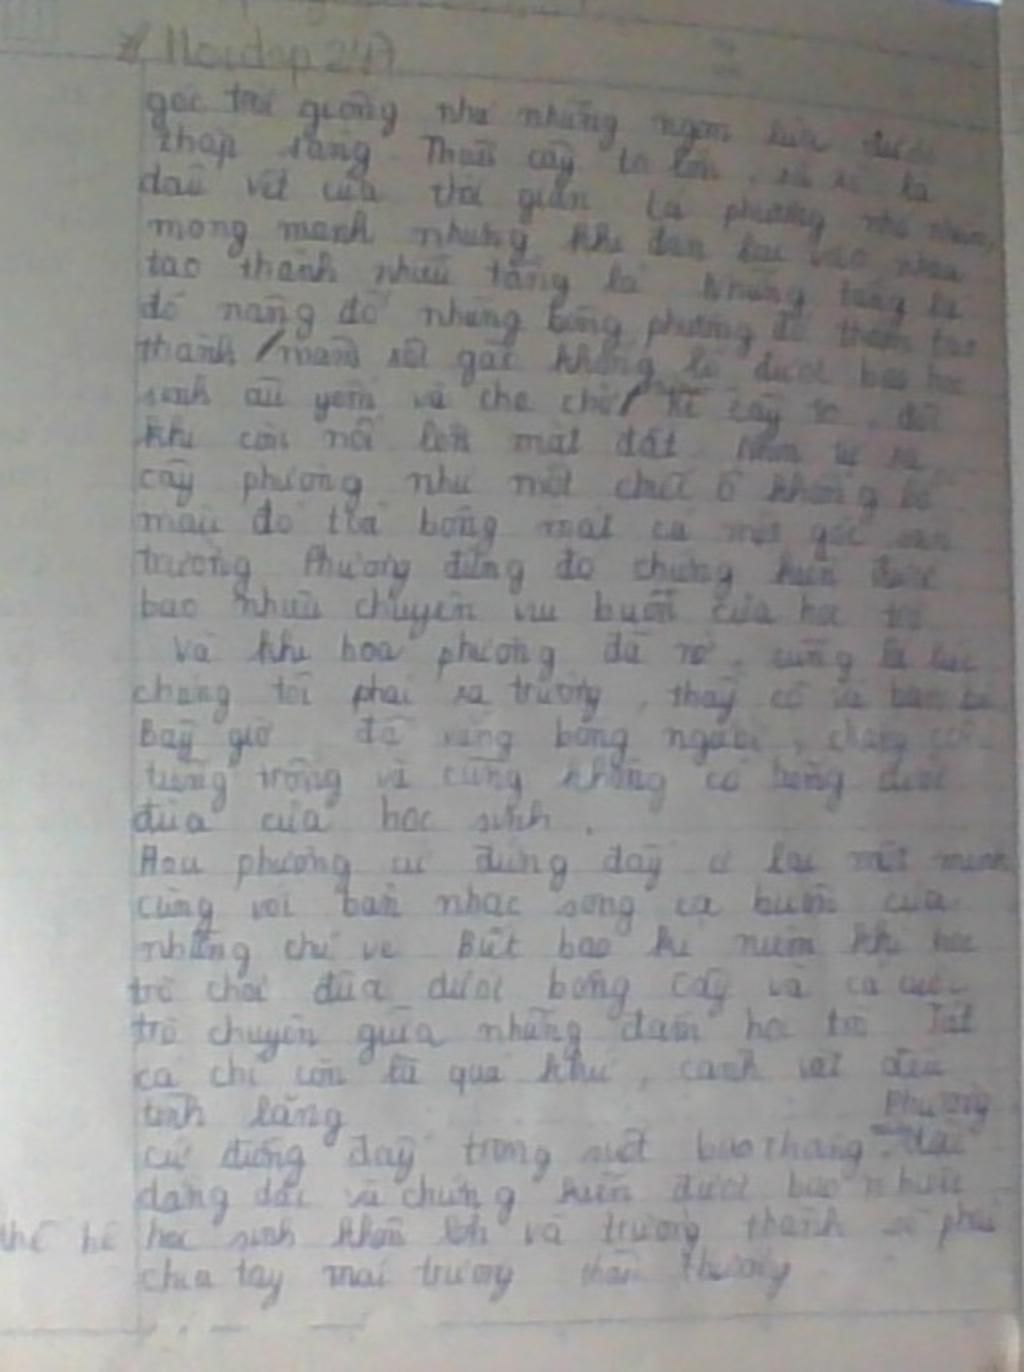 Hoidap247
góc trời giống như những ngọn lửa được
thắp sáng Thân cây to lớn, xù xì là
dấu vết của thời gian Lá phượng nhỏ nhắn,
mong manh nhưng khi đan lại vào nhau
tạo thành nhiều tầng lá Những tầng lá
đó nâng đỡ những bông phượng đỏ thắm tạo
thành / mảnh góc khổng lồ được bao học
sinh âu yếm và che chở / Rễ cây to, đôi
khi còn nổi lên mặt đất Nhìn từ xa
cây phượng như một chiếc ô khổng lồ
màu đỏ tỏa bóng mát cả một góc sân
trường Phượng đứng đó chứng kiến được
bao nhiêu chuyện vui buồn của học trò
Và khi hoa phượng đã nở, cũng là lúc
chúng tôi phải ra trường, thầy cô và bạn bè
Bây giờ đã vắng bóng người, chẳng còn
tiếng trống và cũng không có tiếng cười
đùa của học sinh.
Hoa phượng cứ đứng đấy ở lại một mình
cùng với bản nhạc song ca buồn của
những chú ve Biết bao kỉ niệm khi học
trò chơi đùa dưới bóng cây và cả cuộc
trò chuyện giữa những đám học trò Tất
cả chỉ còn là quá khứ, cảnh vật đều
tĩnh lặng Phượng
cứ đứng đấy trong suốt bao tháng dài
dằng dặc và chứng kiến được bao nhiêu
thế hệ học sinh khôn lớn và trưởng thành sẽ phải
chia tay mái trường thân thương